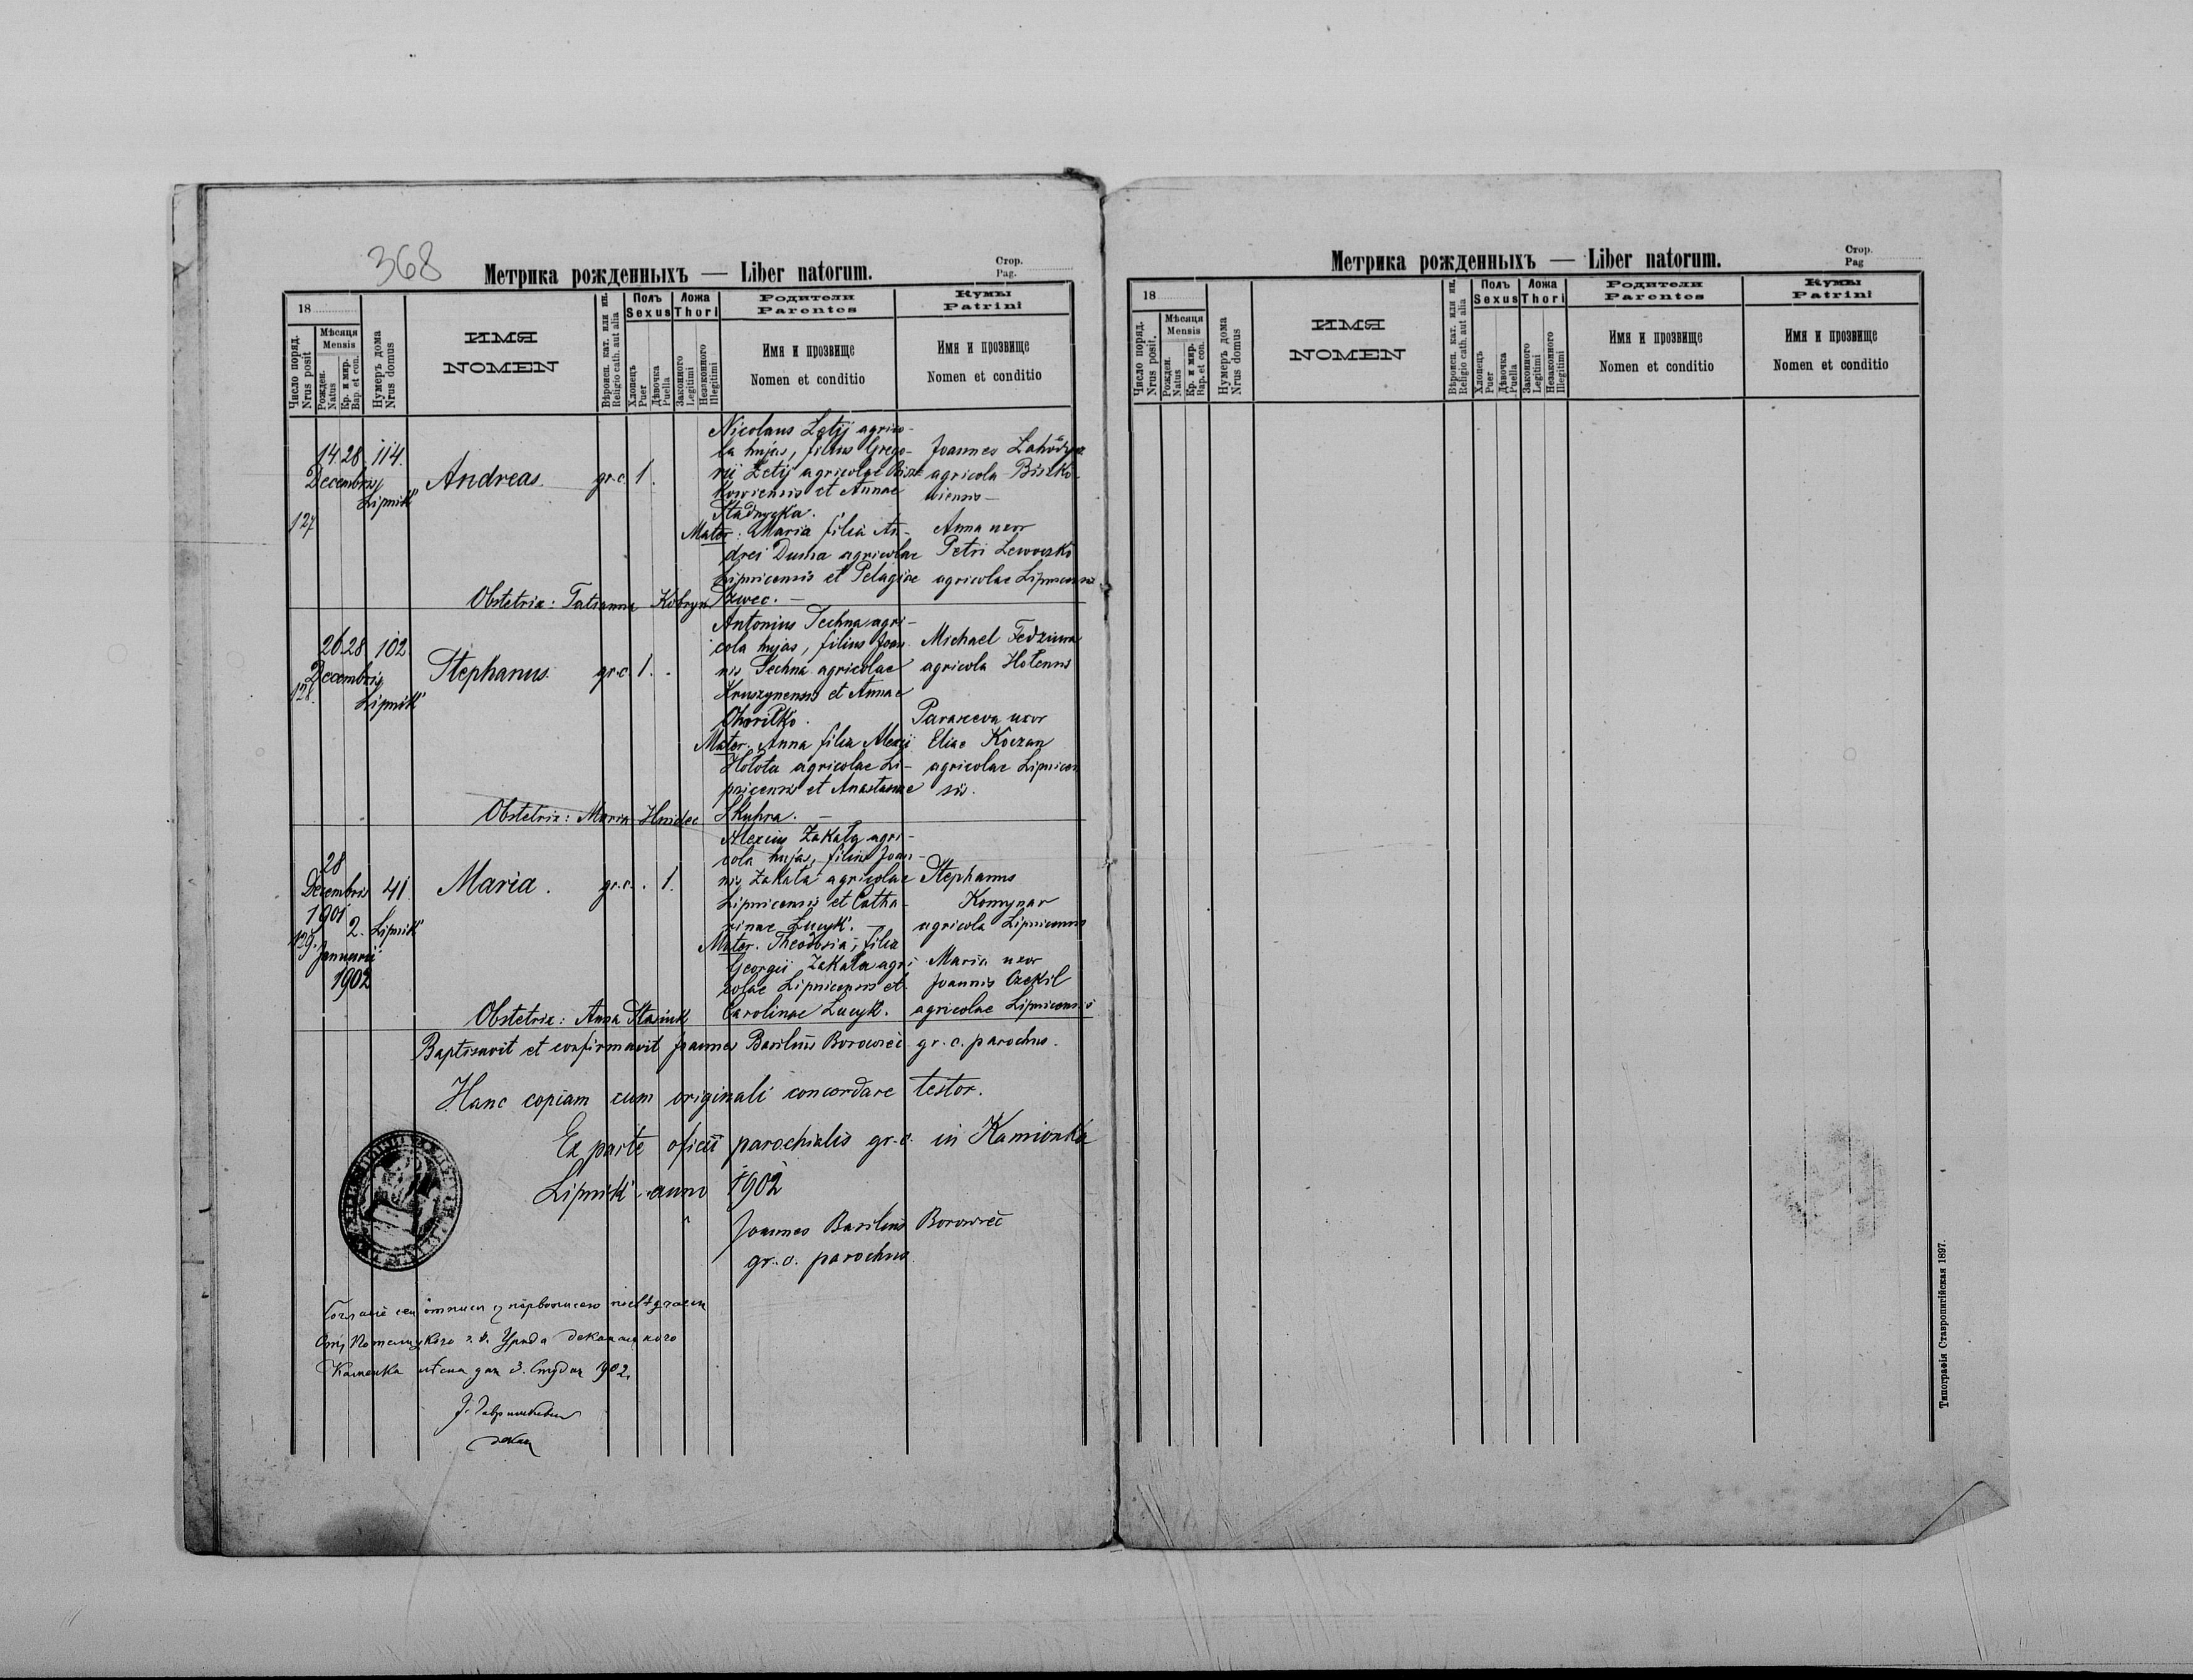 368
Метрика рожденныхъ — Liber natorum.
Стор.
Pag.
18
Число поряд.
Nrus posit
Мѣсяця
Mensis
Рожден.
Natus
Кр. и мир.
Bap. et con.
Нумеръ дома
Nrus domus
ИМЯ
NOMEN
Вѣроисп. кат. или ин.
Religio cath. aut alia
Полъ
Sexus
Хлопецъ
Puer
Дѣвочка
Puella
Ложа
Thori
Законного
Legitimi
Незаконного
Illegitimi
Родители
Parentes
Имя и прозвище
Nomen et conditio
Кумы
Patrini
Имя и прозвище
Nomen et conditio
127
14 28 114.
Decembris
Lipnik
Andreas.
gr.c. 1.
Nicolaus Letij agrico-
la hujas, filius Grego-
rii Letij agricolae
et Annae
Stadnycka.
Mater: Maria filia An-
drei Duma agricolae
Lipnicensis et Pelagiae
Szwec. —
Joannes
agricola
Anna uxor
Petri
agricolae Lipnicensis
Obstetrix: Tatianna Kobryn
128.
26 28 102
Decembris
Lipnik
Stephanus.
gr.c. 1. .
Antonius Techna agri-
cola hujas, filius Joan-
nis Techna agricolae
et Annae
Mater. Anna filia Alexii
Holota agricolae Li-
pnicensis et Anastasiae
Skuhra. —
Michael
agricola
Parasceva uxor
Eliae Koczan
agricolae Lipnicen
sis.
Obstetrix: Maria Hnidec
129.
28
Decembris
1901
2.
Januarii
1902
41
Lipnik
Maria.
gr.c. . 1.
Alexius Zakala agri-
cola hujas, filius Joan-
nis Zakala agricolae
Lipnicensis et Catha-
rinae Lucyk. —
Mater. Theodosia, filia
Georgii Zakala agri-
colae Lipnicensis et
Carolinae Lucyk.
Stephanus
Komynar
agricola Lipnicensis
Maria uxor
Joannis
agricolae Lipnicensis
Obstetrix: Anna Stasiuk
Baptisavit et confirmavit Joannes Basilius Borowiec gr. c. parochus.
Hanc copiam cum originali concordare testor.
Ex parte oficii parochialis gr.-c. in Kamionka
Lipnik anno 1902
Joannes Basilius Borowiec
gr. c. parochus
Каменка 1902,
декан
Метрика рожденныхъ — Liber natorum.
Стор.
Pag
18
Число поряд.
Nrus posit.
Мѣсяця
Mensis
Рожден.
Natus
Кр. и мир.
Bap. et con.
Нумеръ дома
Nrus domus
ИМЯ
NOMEN
Вѣроисп. кат. или ин.
Religio cath. aut alia
Полъ
Sexus
Хлопецъ
Puer
Дѣвочка
Puella
Ложа
Thori
Законного
Legitimi
Незаконного
Illegitimi
Родители
Parentes
Имя и прозвище
Nomen et conditio
Кумы
Patrini
Имя и прозвище
Nomen et conditio
Типографія Ставропигійская 1897.